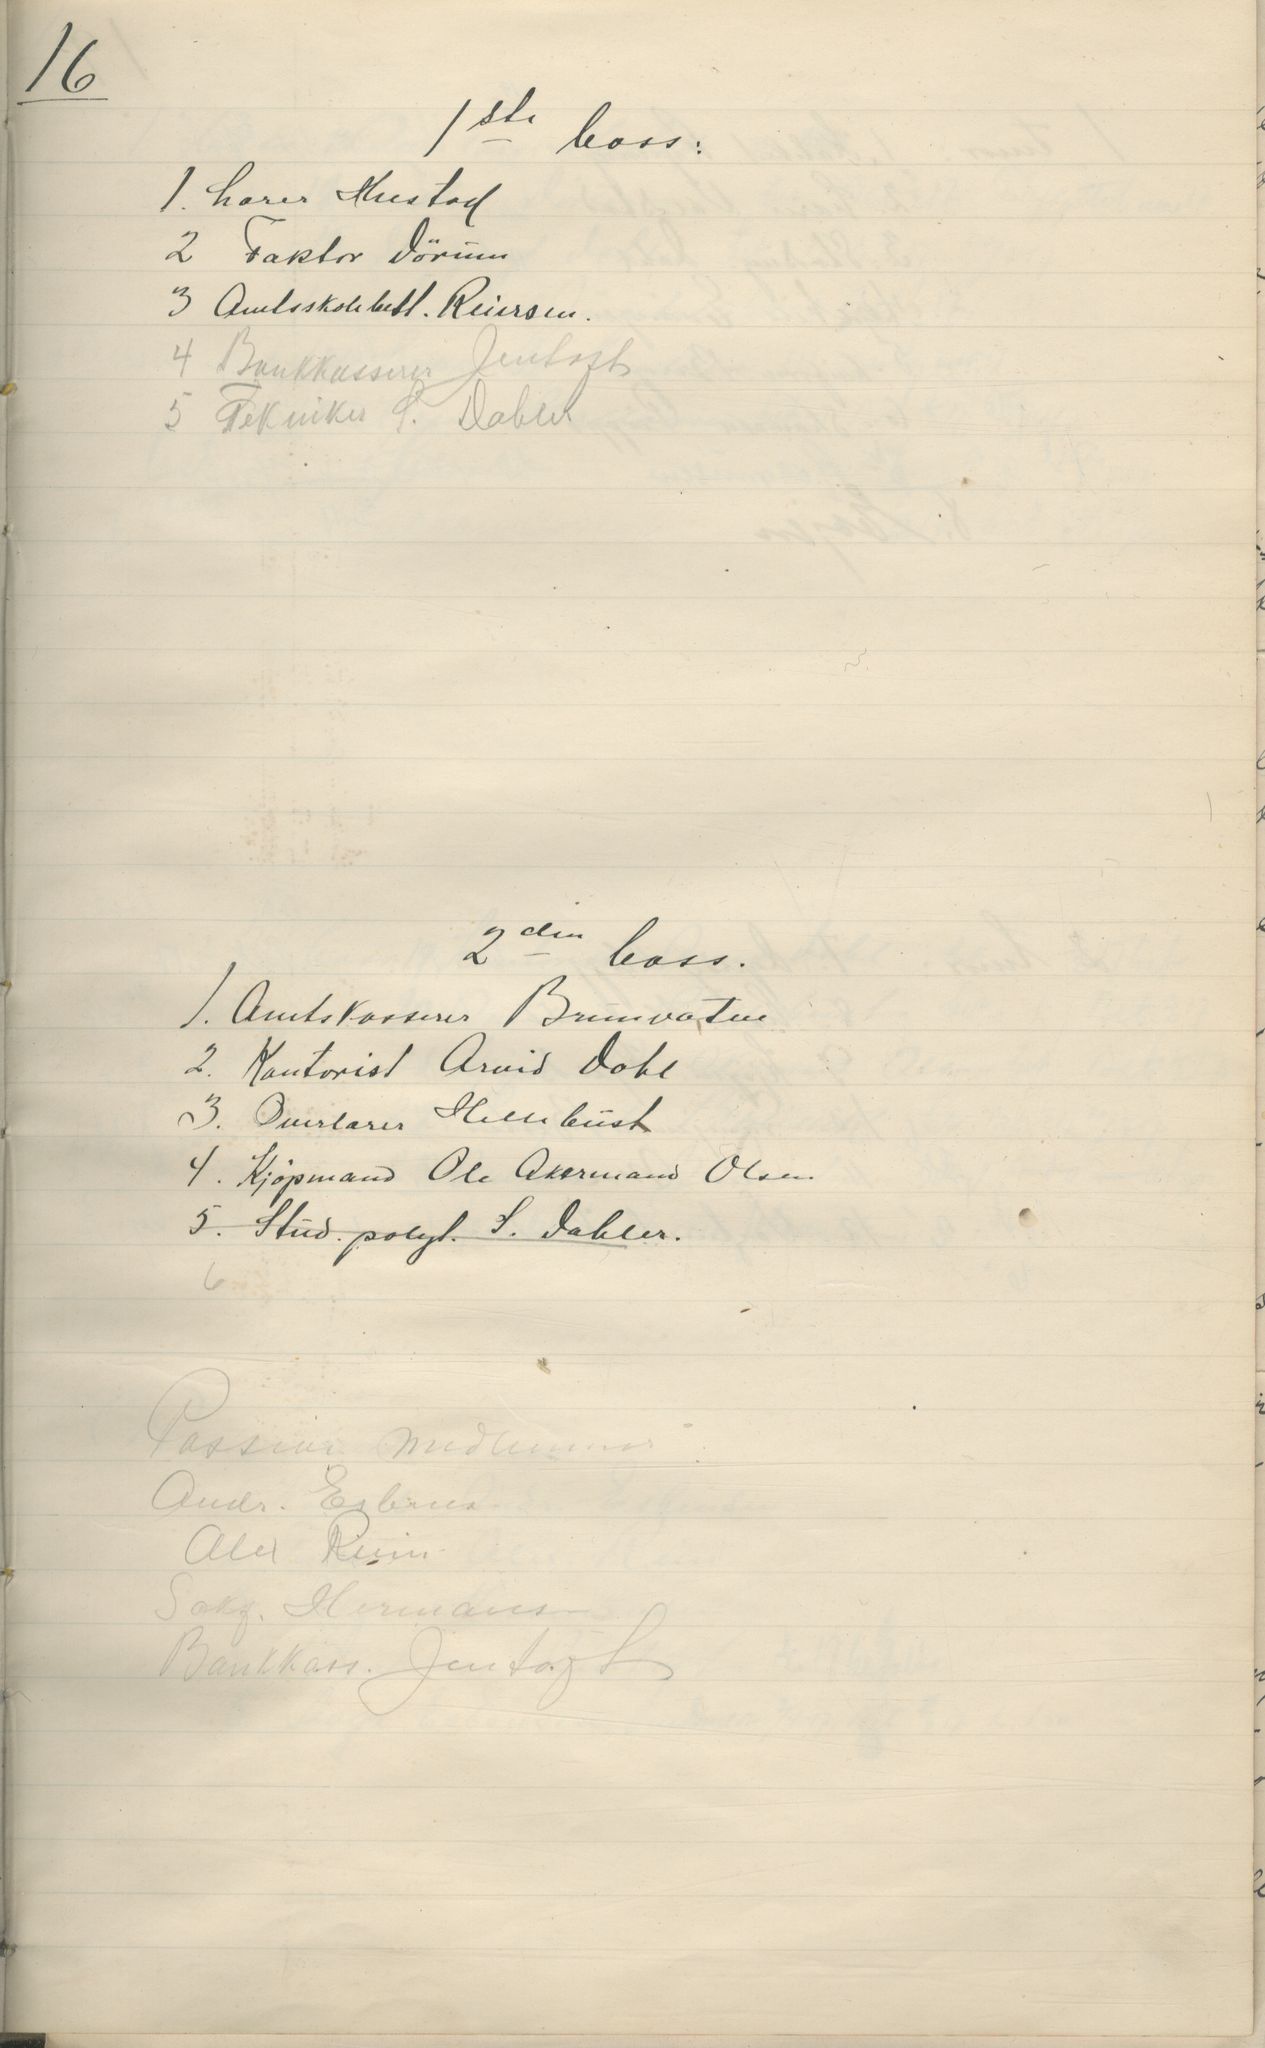 16
1ste bass:
1. Lærer Hustad
2 Faktor Dörum
3 Amtsskolebest. Reiersen.
4 Bankkasserer Jentoft
5 Tekniker S. Dahler
2den bass.
1. Amtskasserer Brunvatne
2. Kontorist Arvid Dahl
3. Overlærer Hellebust
4. Kjöpmand Ole Akermand Olsen
5. Stud. polyt. S. Dahler.
6
Passive medlemmer
Andr. Esbens
Alex Reim
Sakf. Hermans
Bankkass. Jentoft